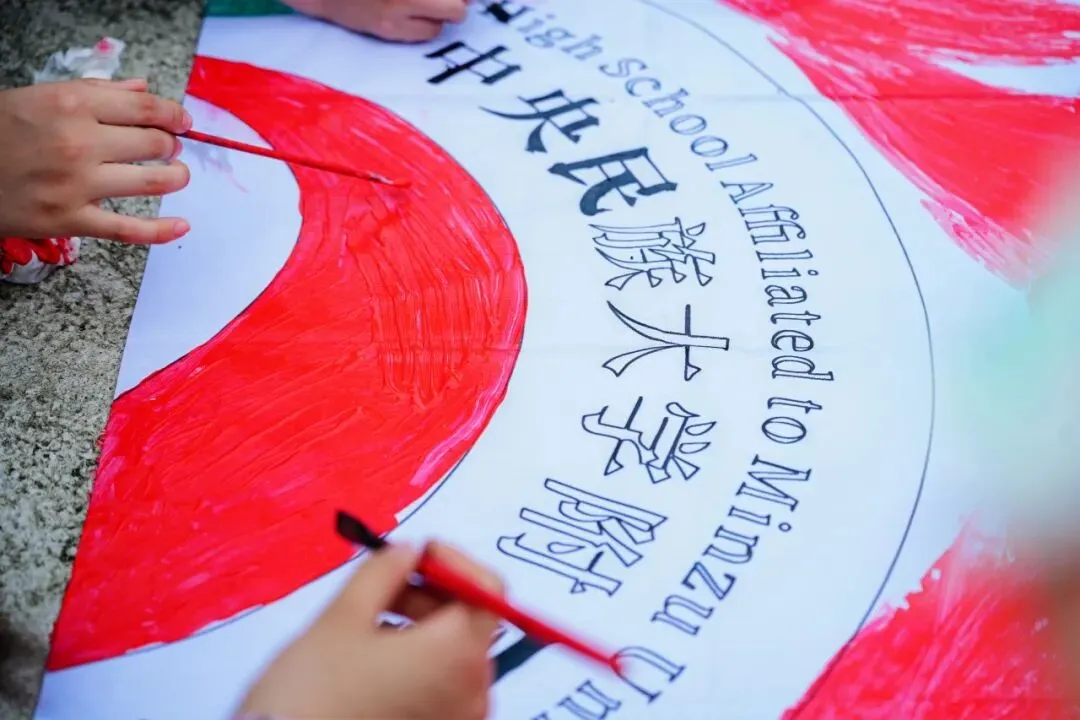 High School Affiliated to Minzu Un
中央民族大学附